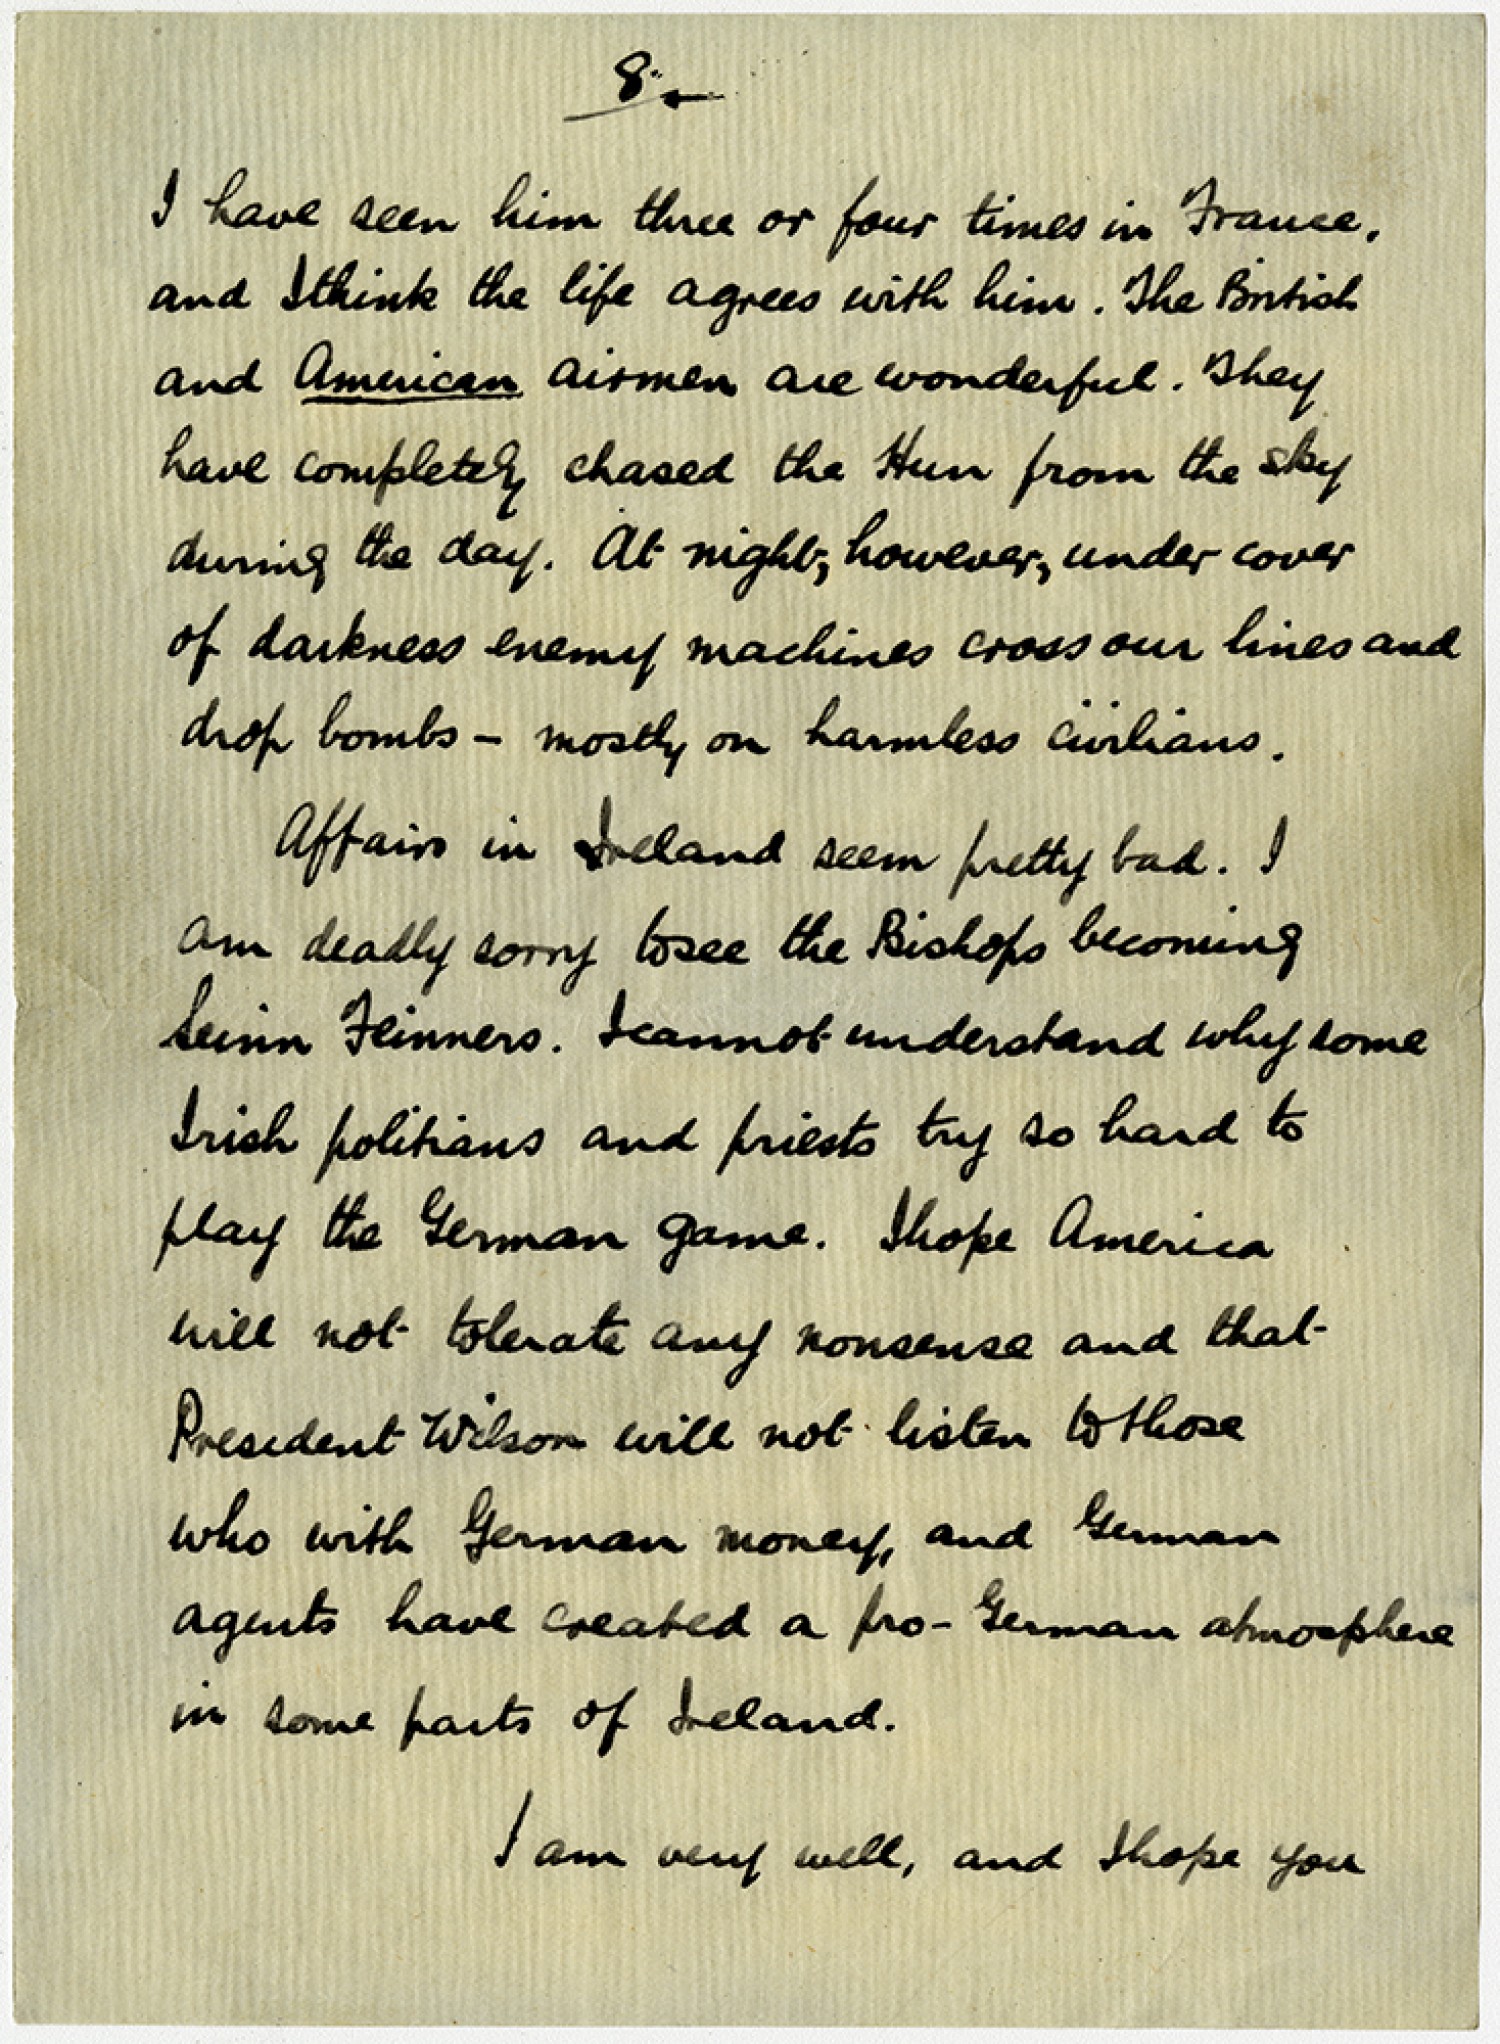 8.
I have seen him three or four times in France,
and I think the life agrees with him. The British
and American airmen are wonderful. They
have completely chased the Hun from the sky
during the day. At night, however, under cover
of darkness enemy machines cross our lines and
drop bombs - mostly on harmless civilians.
Affairs in Ireland seem pretty bad. I
am deadly sorry to see the Bishops becoming
Seinn Feinners. I cannot understand why some
Irish politians and priests try so hard to
play the German game. I hope America
will not tolerate any nonsense and that
President Wilson will not listen to those
who with German money, and German
agents have created a pro-German atmosphere
in some parts of Ireland.
I am very well, and I hope you